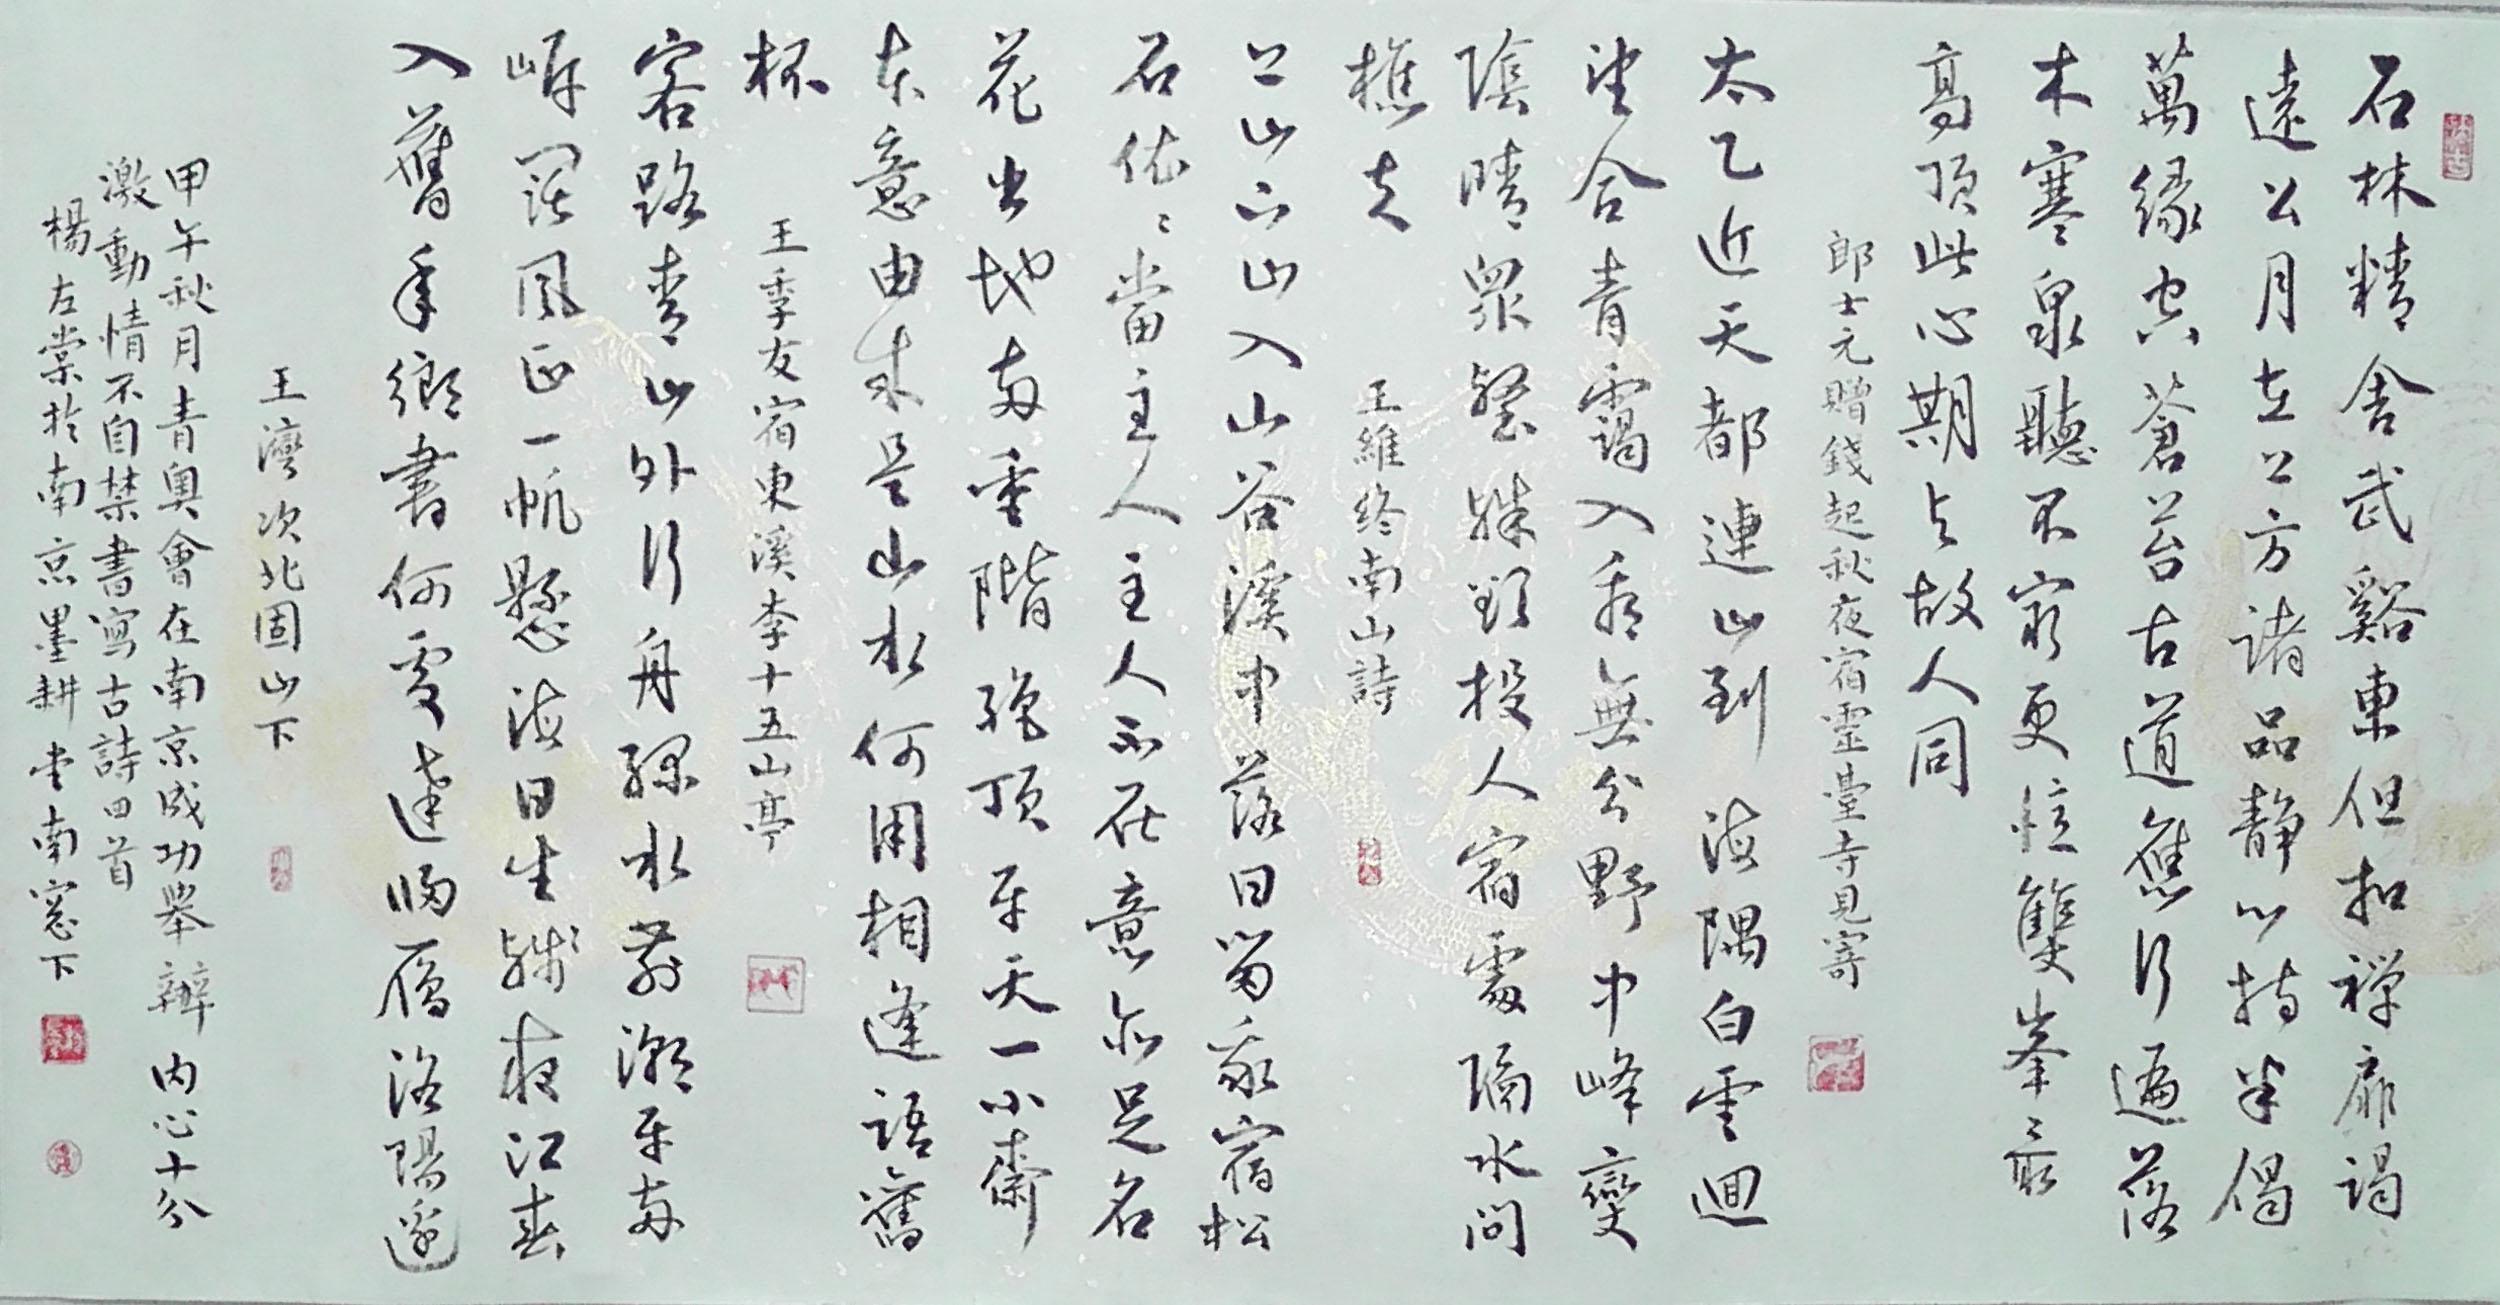 石林精舍武谿東但扣禅扉谒
遠公月在上方诸品静心持半偈
萬緣空蒼苔古道應行遍落
木寒泉聽不窮更憶雙峯〻最
高顶此心期与故人同
郎士元贈錢起秋夜宿霊臺寺見寄
太乙近天都連山到海隅白雲迴
望合青靄入看無分野中峰變
陰晴衆壑殊欲投人宿處隔水问
樵夫
王維終南山詩
上山下山入山谷溪中落日留我宿松
石依〻當主人主人不在意亦足名
花出地两重階绝顶平天一小齋
本意由来是山水何用相逢語舊
杯
王季友宿東溪李十五山亭
客路青山外行舟緑水前潮平两
岸闊風正一帆懸海日生殘夜江春
入舊年鄉書何處達歸雁洛陽邊
王灣次北固山下
甲午秋月青奥會在南京成功舉辦内心十分
激動情不自禁書寫古詩四首
楊左棠於南京墨耕堂南窓下